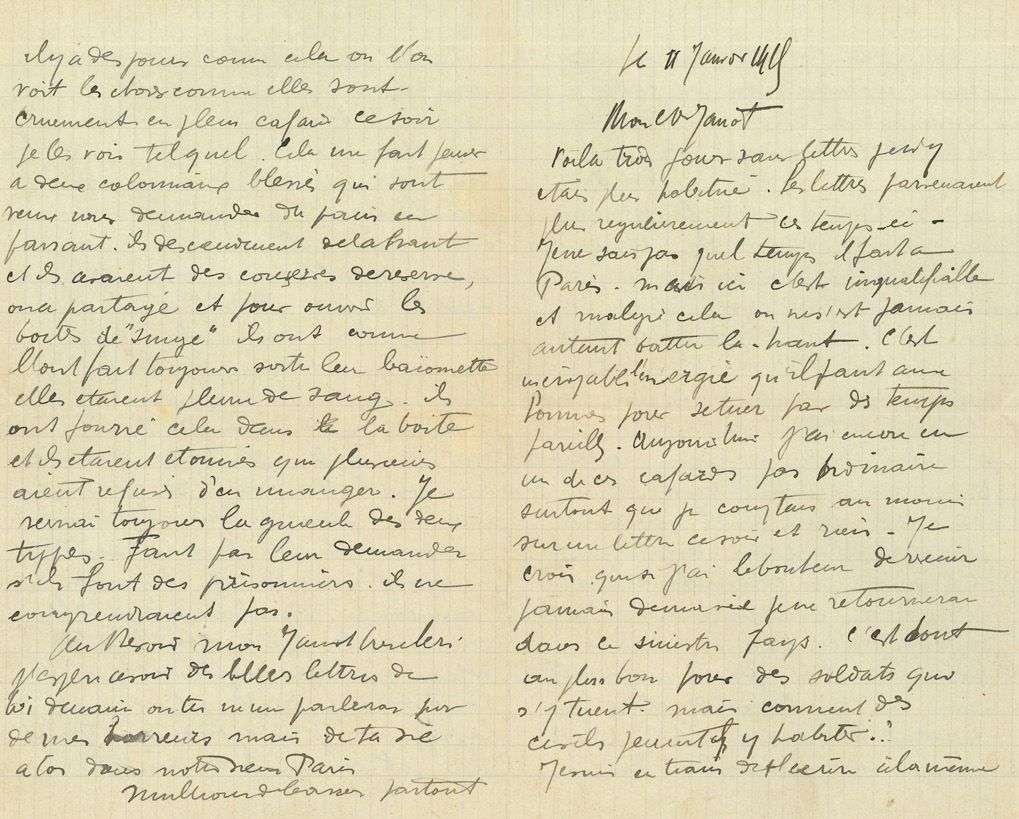 Le 11 Janvier 1915
Mon Cher Janot
Voila trois jours sans lettres je n'y
etais plus habitué. Les lettres parvenaient
plus regulierement ces temps-ci -
Je ne sais pas quel temps il fait a
Paris. mais ici c'est inqualifiable
et malgré cela on ne s'est jamais
autant battu la-haut. C'est
incroyable l'energie qu'il faut aux
hommes pour se tuer par des temps
pareils. Aujourd'hui j'ai encore eu
un de ces cafards pas ordinaire
surtout que je comptais au moins
sur une lettre ce soir et rien - Je
crois que si j'ai le bonheur de revenir
jamais de ma vie je ne retournerai
dans ce sinistre pays. C'est tout
au plus bon pour des soldats qui
s'y tuent. mais comment des
civils peuvent y habiter..?
Je suis en train de t'ecrire à la même
il y a des jours comme cela ou l'on
voit les choses comme elles sont
cruement en plein cafard ce soir
je les vois tel quel. Cela me fait penser
a deux coloniaux blessés qui sont
venus nous demander du pain en
passant. ils descendaient de la haut
et ils avaient des conserves de reserve,
on a partagé et pour ouvrir les
boites de "singe" ils ont comme
ils l'ont fait toujours sorti leur baïonnette
elles etaient pleines de sang. ils
ont fourré cela dans la boite
et ils etaient etonnés que plusieurs
aient refusé d'en manger. Je
verrai toujours la gueule des deux
types. Faut pas leur demander
s'ils font des prisonniers. ils ne
comprendraient pas.
Au Revoir mon Janot cheri
j'espere avoir des belles lettres de
toi demain ou tu ne me parleras pas
de mes horreurs mais de ta vie
a toi dans notre vieux Paris
Mille choses de baisers partout